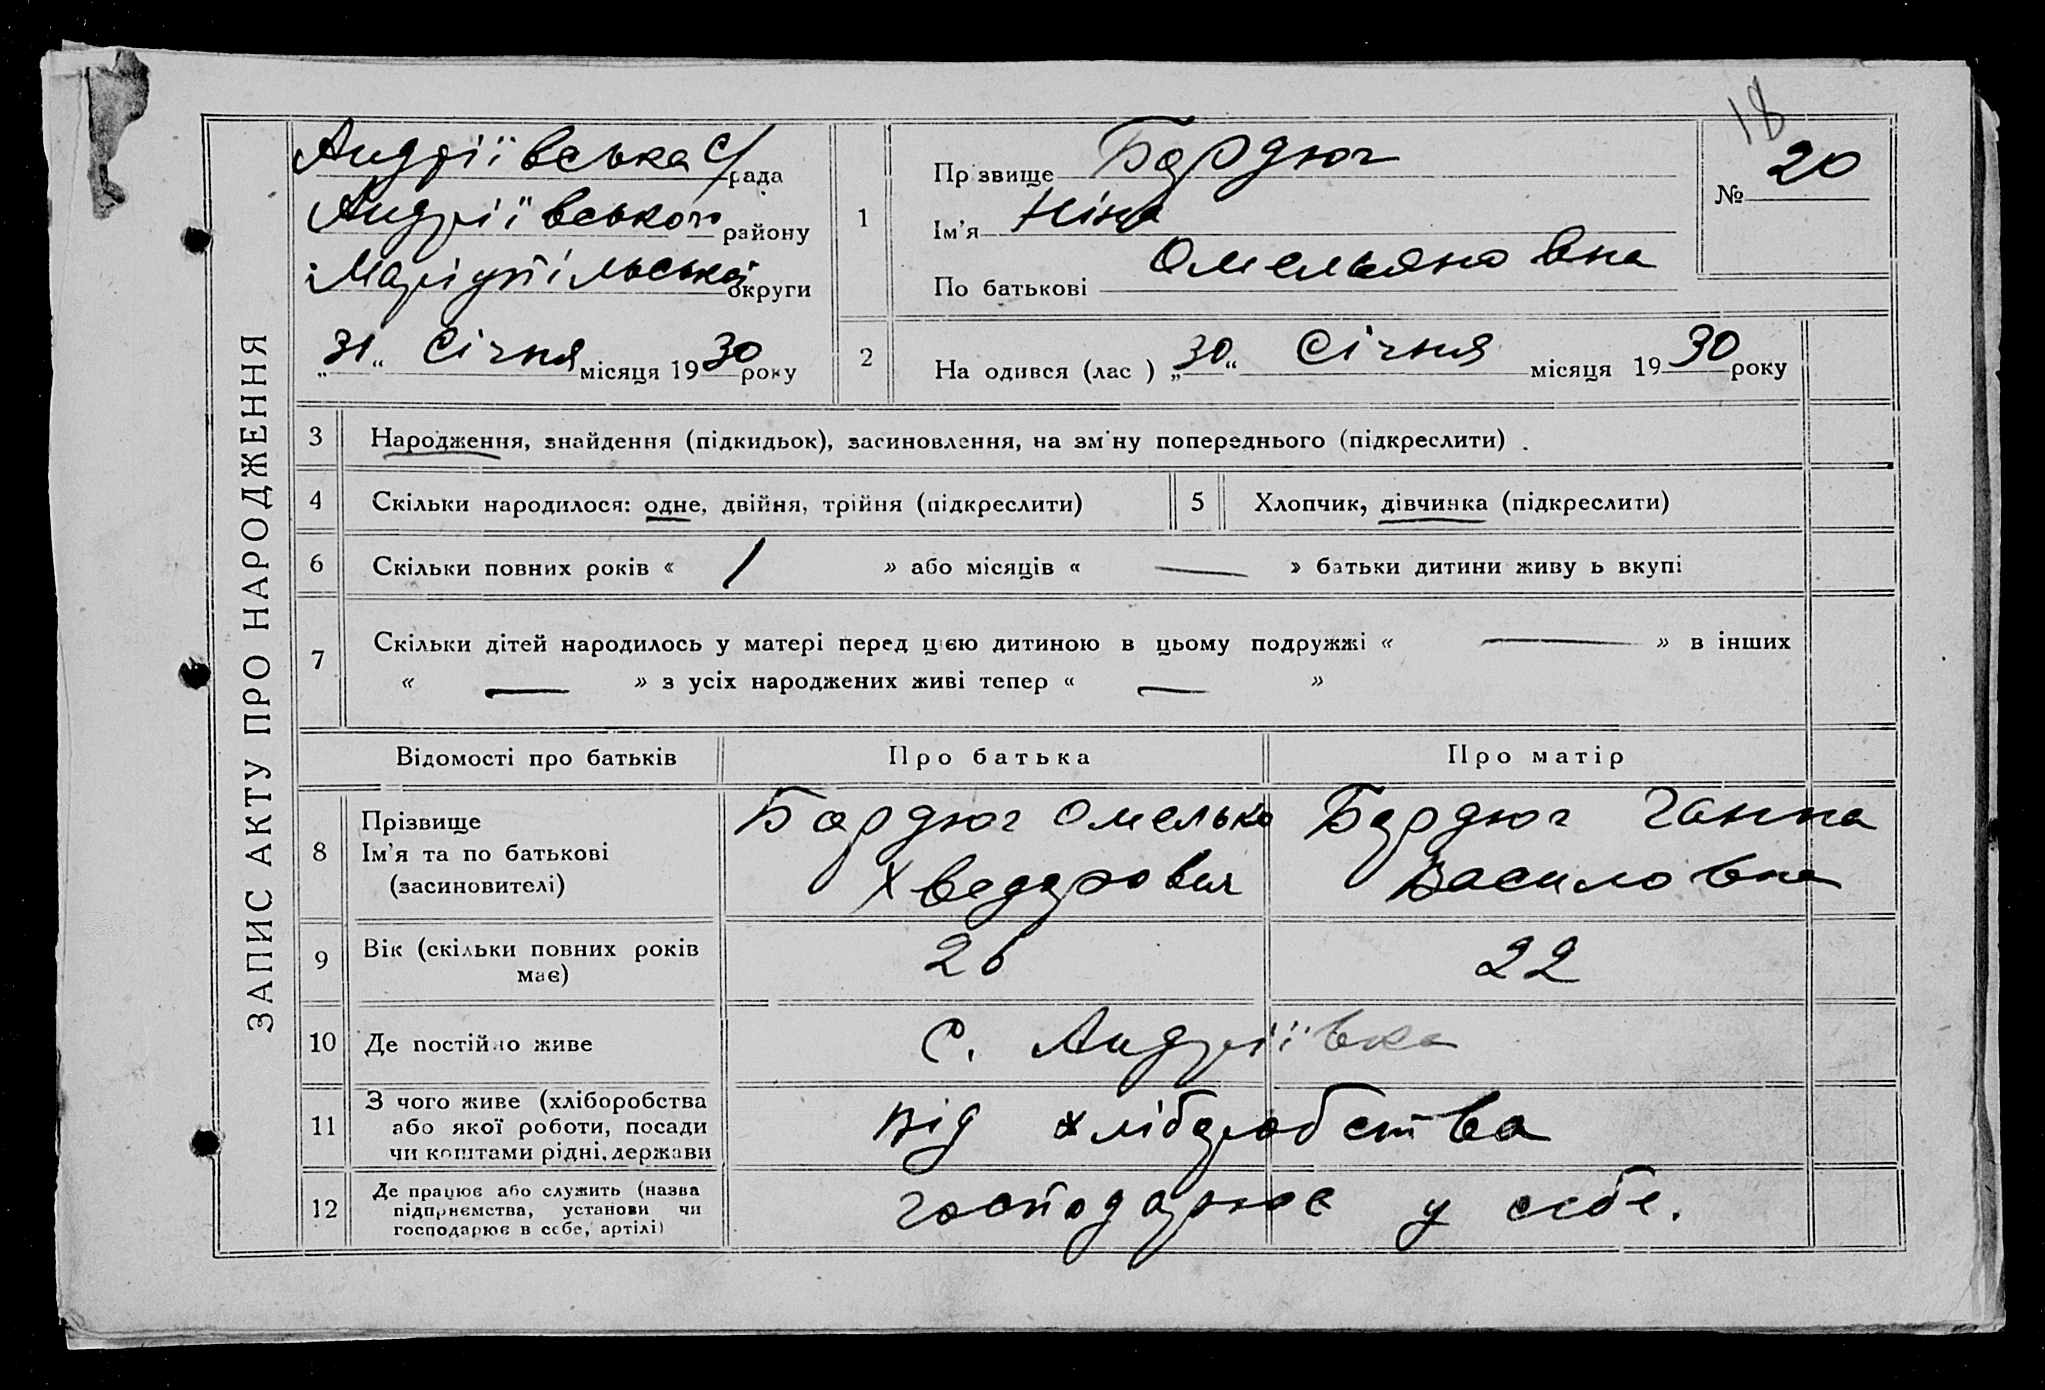 18
ЗАПИС АКТУ ПРО НАРОДЖЕННЯ
Андріївська с/рада
Андріївського району
Маріупільської округи
„31“ Січня місяця 1930 року
1
Прізвище Бардюг
Ім'я Ніна
По батькові Омельяновна
№ 20
2
На одився (лас ) „30“ Січня місяця 1930 року
3 Народження, знайдення (підкидьок), засиновлення, на зміну попереднього (підкреслити) .
4 Скільки народилося: одне, двійня, трійня (підкреслити)
5 Хлопчик, дівчинка (підкреслити)
6 Скільки повних років « / » або місяців « — » батьки дитини живу ь вкупі
7 Скільки дітей народилось у матері перед цією дитиною в цьому подружжі « — » в інших
« — » з усіх народжених живі тепер « — »
Відомості про батьків Про батька Про матір
8 Прізвище
Ім'я та по батькові
(засиновителі)
Бардюг Омелько
Хведорович
Бардюг Ганна
Василовна
9 Вік (скільки повних років
має)
26
22
10 Де постійно живе
с. Андріївка
11 З чого живе (хліборобства
або якої роботи, посади
чи коштами рідні, держави
від хліборобства
12 Де працює або служить (назва
підприємства, установи чи
господарює в себе, артілі)
господарює у себе.